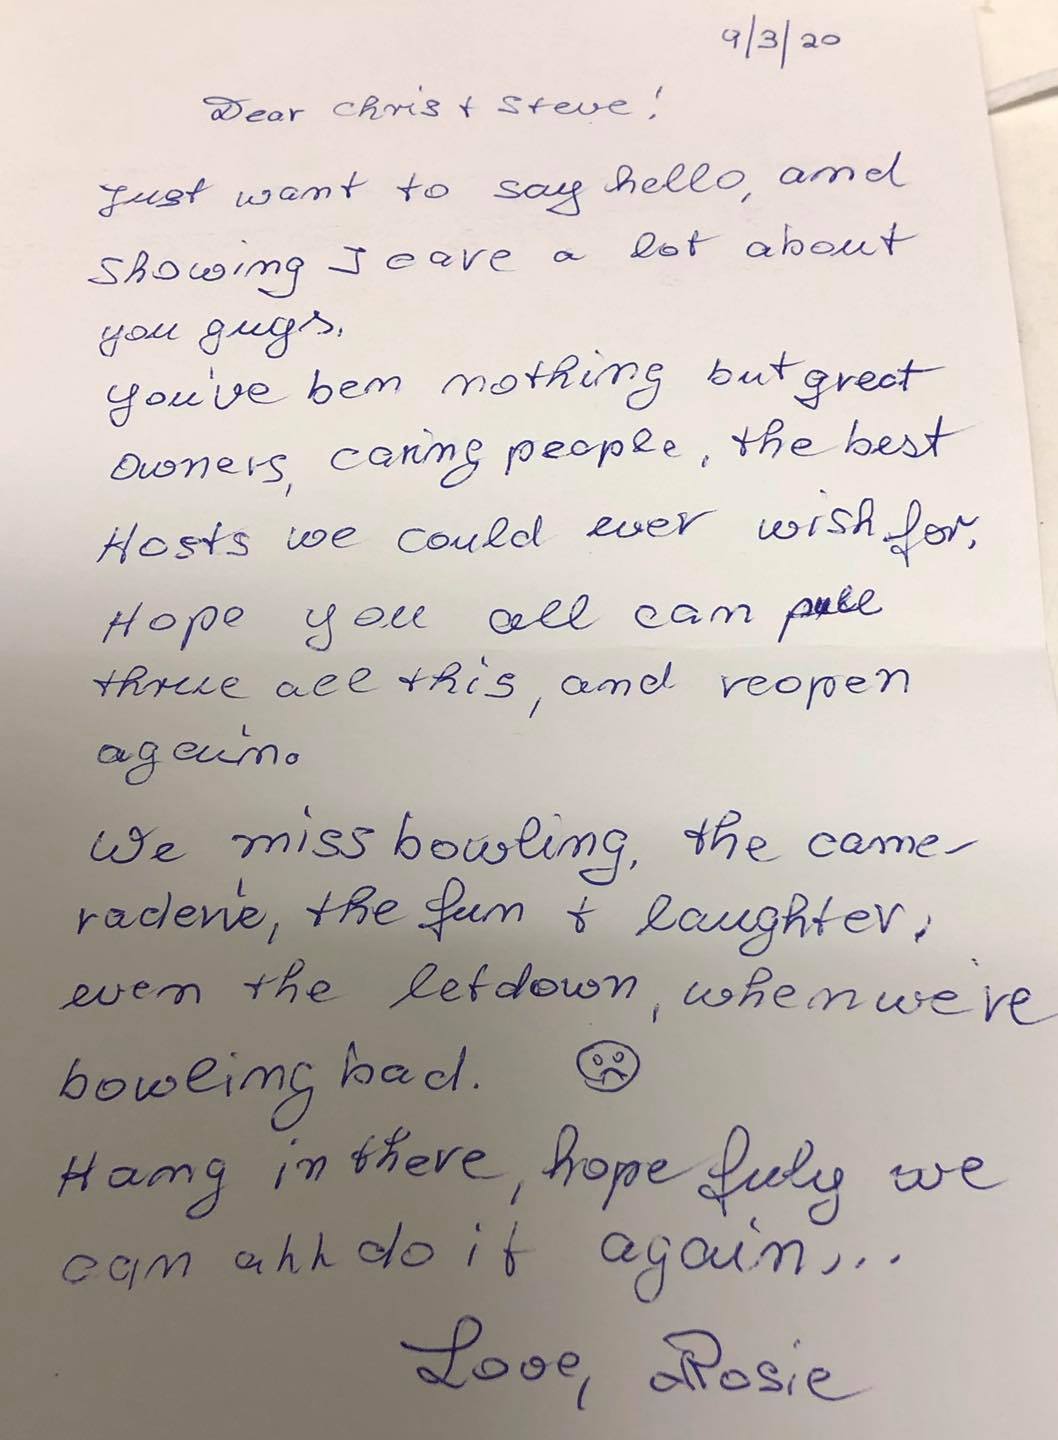 9/3/20
Dear Chris + Steve!
Just want to say hello, and
showing I care a lot about
you guys.
You've ben nothing but great
owners, caring people, the best
Hosts we could ever wish for.
Hope you all can pull
thrue all this, and reopen
again.
We miss bowling, the came-
raderie, the fun + laughter,
even the letdown, when we're
bowling bad.
Hang in there, hope fuly we
can all do it again...
Love, Rosie